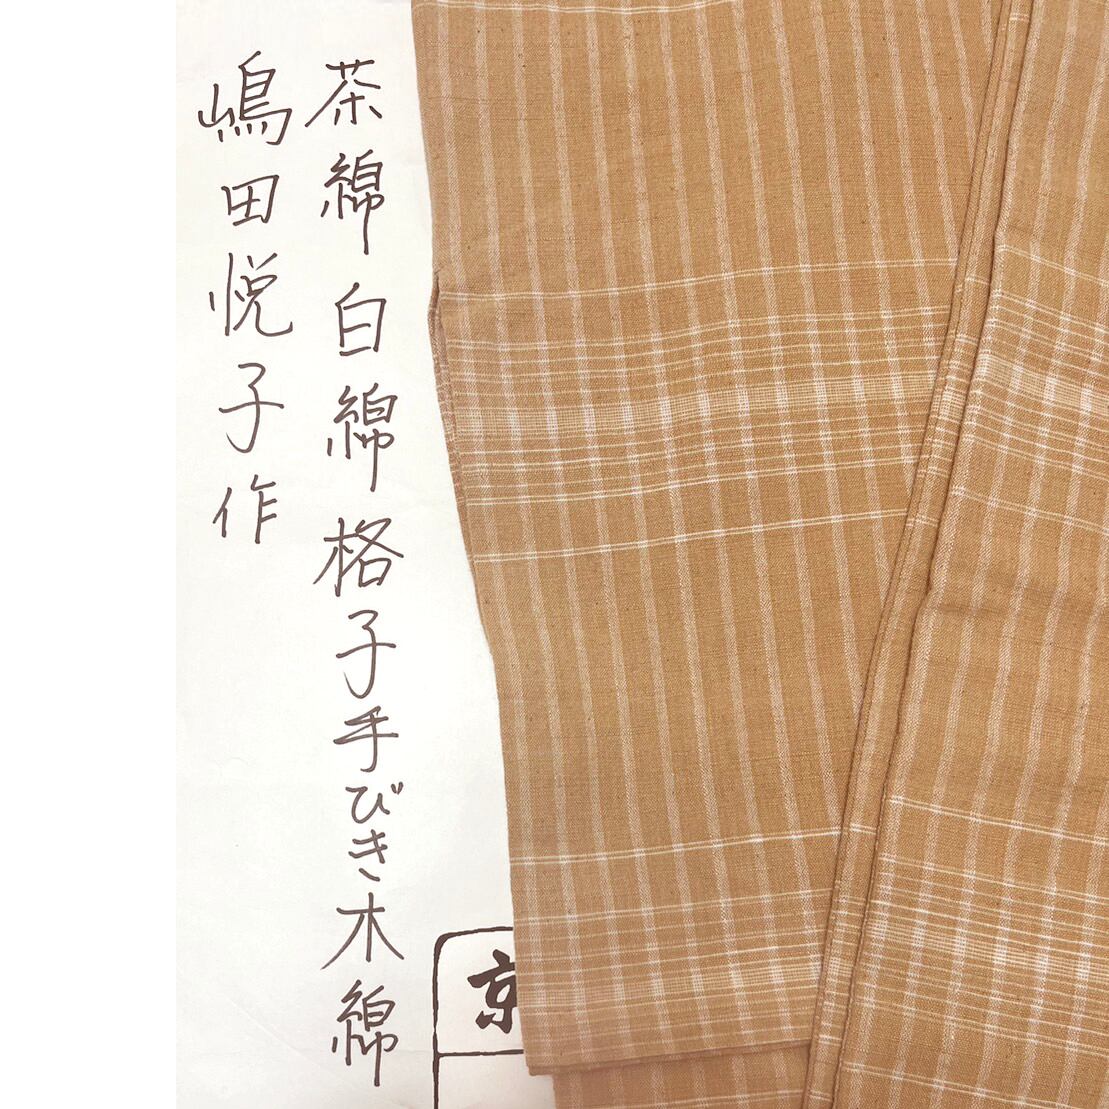 茶綿白綿格子手びき木綿
嶋田悦子作
京